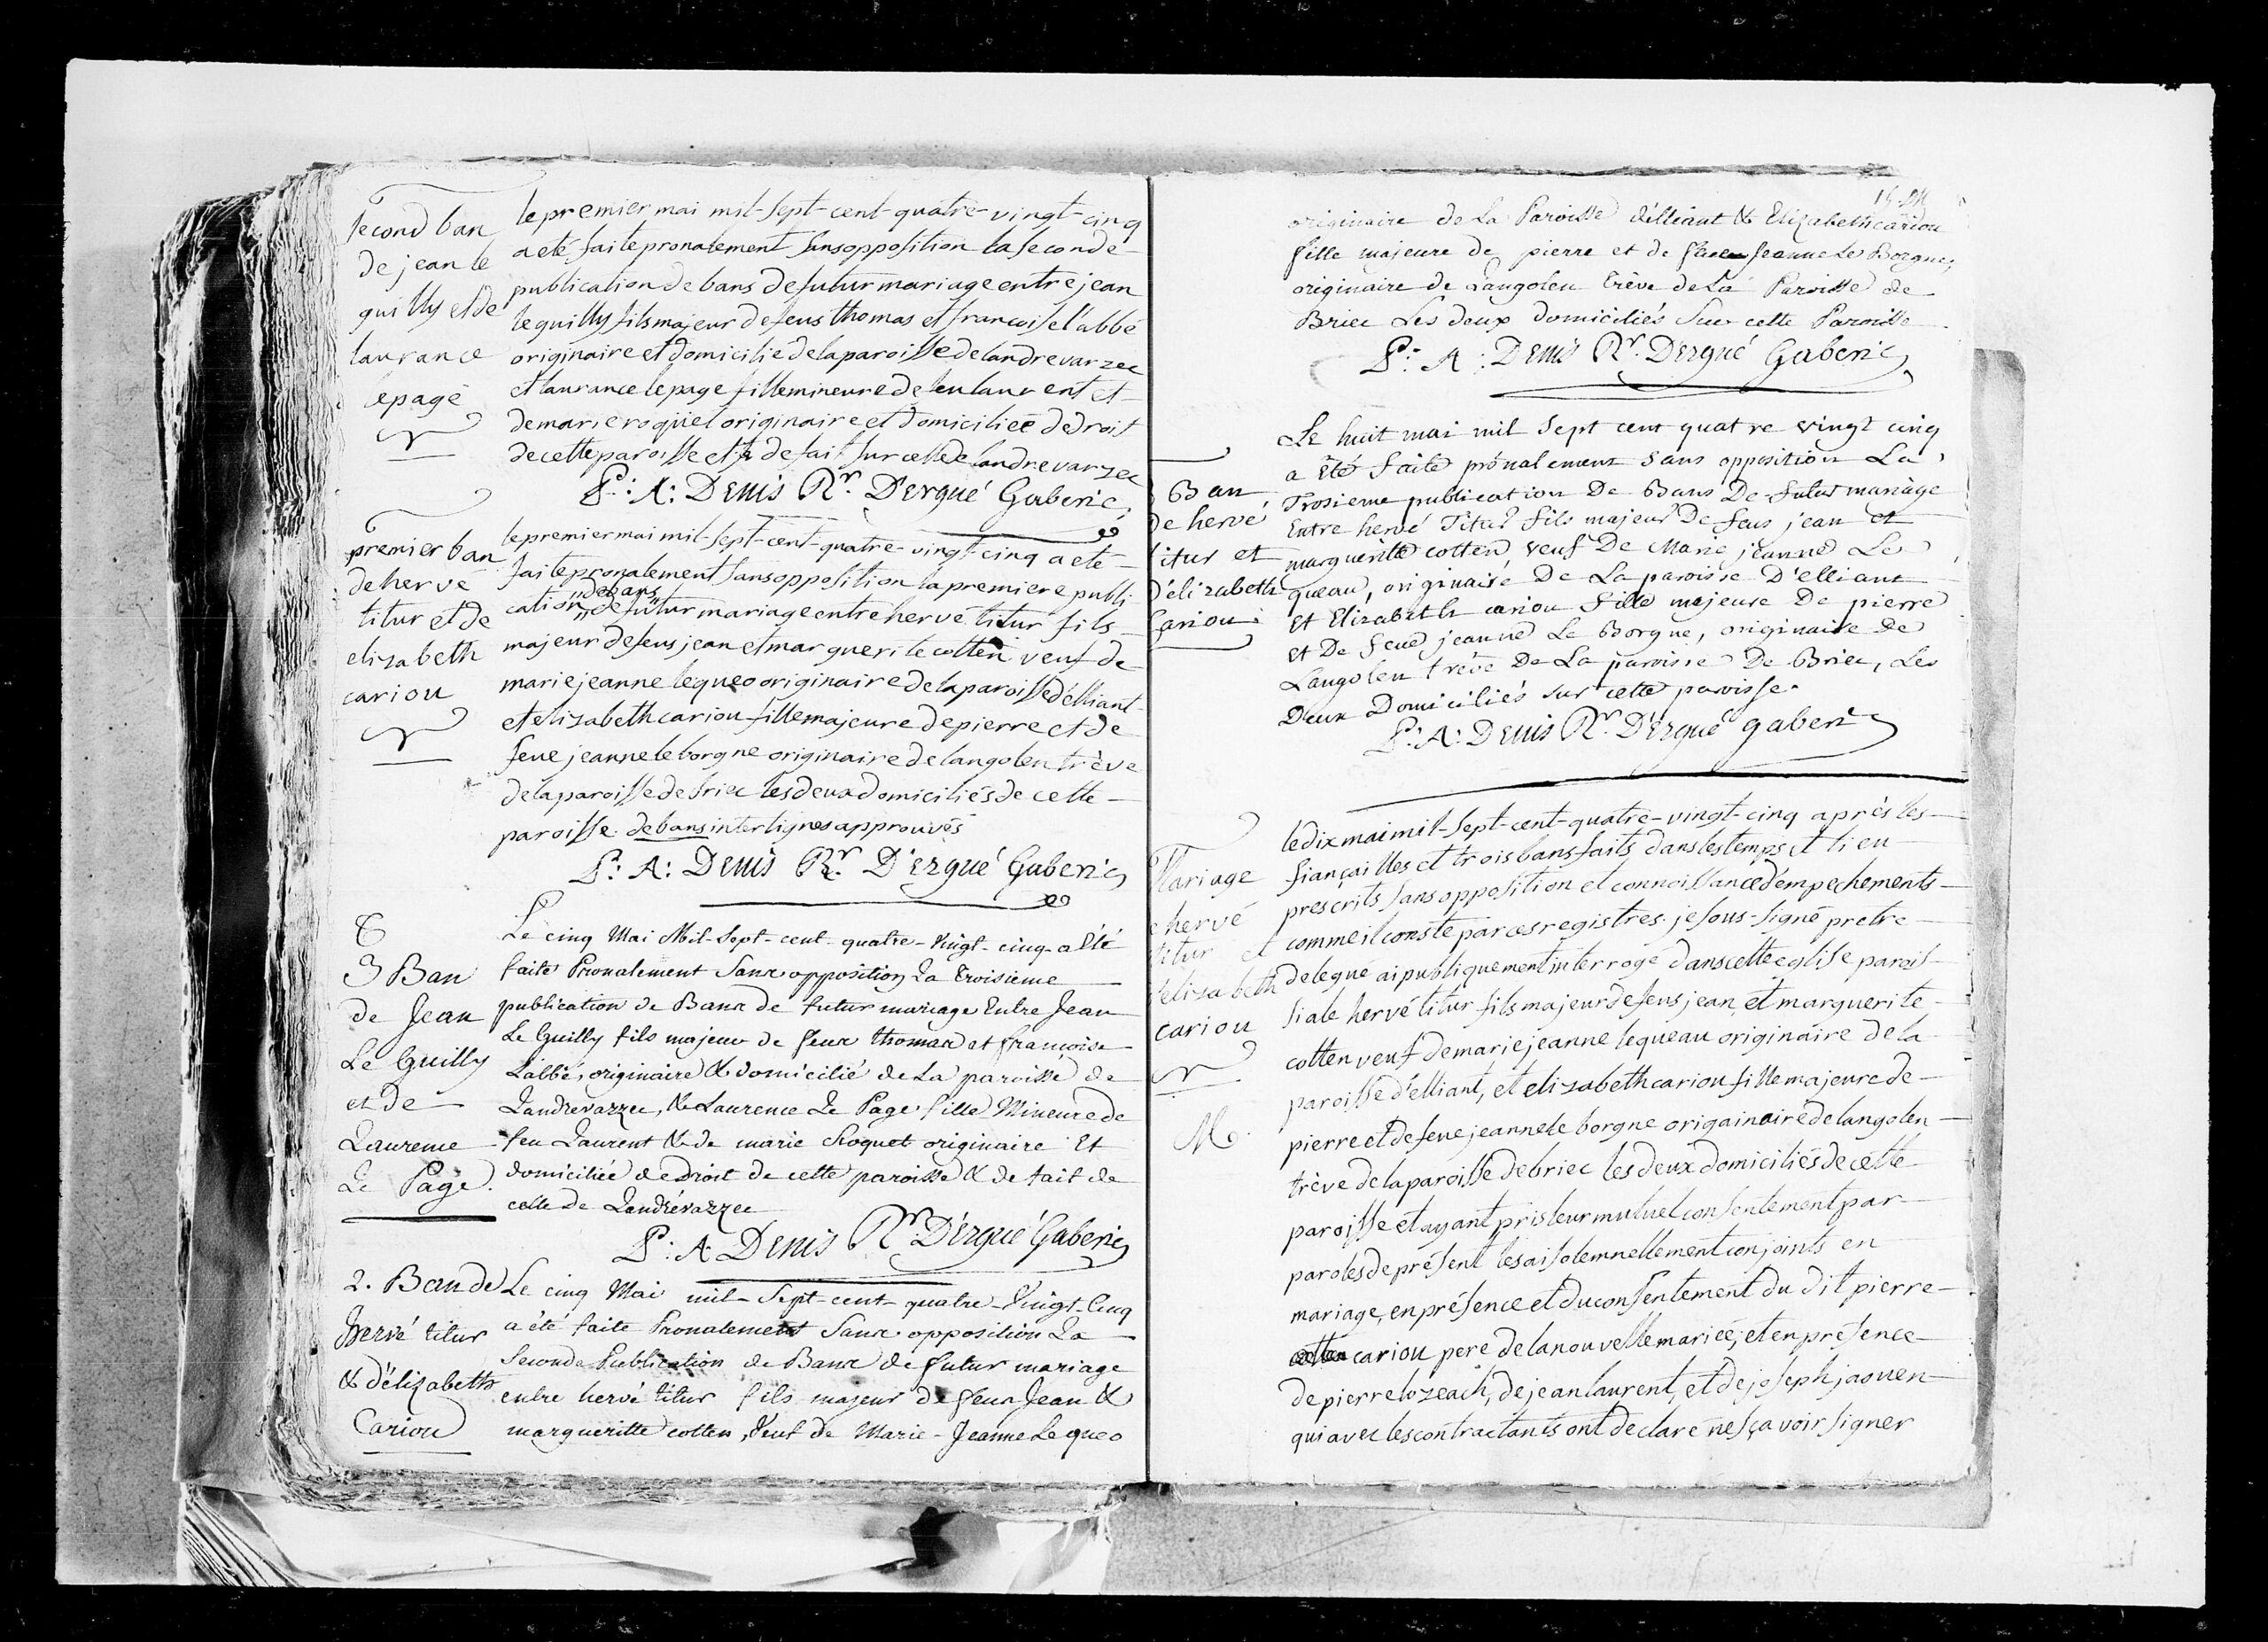 second ban
de jean le
guilly et de
laurance
lepage
le premier mai mil-sept-cent-quatre-vingt-cinq
a eté faite pronalement sans opposition la seconde
publication de bans de futur mariage entre jean
le guilly fils majeur de feus thomas et francoise l'abbé
originaire et domicilié de la paroisse de landrevarzec
et laurance le page fille mineure de feu laurent et
de marie roquet originaire et domiciliée de droit
de cette paroisse et de fait sur celle de landrevarzec
P: A: Denis Rr. D'ergué Gaberic
premier ban
de hervé
titur et de
elizabeth
cariou
le premier mai mil-sept-cent-quatre-vingt-cinq a eté
faite pronalement sans opposition la premiere publi-
de bans
cation de futur mariage entre hervé titur fils
majeur de feus jean et marguerite cotten veuf de
marie jeanne le queo originaire de la paroisse d'elliant
et elizabeth cariou fille majeure de pierre et de
feue jeanne le borgne originaire de langolen trève
de la paroisse de briec les deux domiciliés de cette
paroisse. de bans interlignes approuvés
P: A: Denis Rr. D'ergué Gaberic
3 Ban
de Jean
Le Guilly
et de
Laurence
Le Page.
Le cinq Mai Mil-Sept-cent-quatre-Vingt-cinq a été
faite Pronalement Sans opposition La troisieme
publication de Bans de futur mariage Entre Jean
Le Guilly fils majeur de feus thomas et françoise
Labbé, originaire & domicilié de La paroisse de
Landrevarzec, & Laurence Le Page fille Mineure de
feu Laurent & de marie Roquet originaire Et
domiciliée de Droit de cette paroisse & de fait de
celle de Landrévarzec
P: A Denis Rr. D'ergué Gaberic
2. Ban de
hervé titur
& d'élizabeth
Cariou
Le cinq Mai mil-Sept-cent-quatre-Vingt-Cinq
a été faite Pronalement Sans opposition La
Seconde Publication de Bans de futur mariage
entre hervé titur fils majeur de feus Jean &
margueritte cotten, Veuf de Marie-Jeanne Le queo
originaire de La Paroisse d'élliant & Elizabeth cariou
fille majeure de pierre et de feue Jeanne Le Borgne,
originaire de Langolen Trève de La Paroisse de
Briec Les deux domiciliés Sur cette Paroisse
P: A: Denis Rr. D'ergué Gaberic
Ban
de hervé
titur et
d'élizabeth
Cariou
Le huit mai mil Sept cent quatre vingt cinq
a été faite prônalement sans opposition La
Trosieme publication De Bans De futur mariage
Entre hervé Titur fils majeur De feus jean et
marguerite cotten veuf De Marie jeanne Le
queau, originaire De La paroisse D'elliant
et Elizabeth cariou fille majeure De pierre
et De feue jeanne Le Borgne, originaire De
Langolen trève De La paroisse De Briec, Les
Deux Domiciliés sur cette paroisse.
P: A: Denis Rr. D'ergué gaberic
Mariage
hervé
titur et
elizabeth
cariou
M.
le dix mai mil-sept-cent-quatre-vingt-cinq après les
fiançailles et trois bans faits dans les temps et lieu
prescrits sans opposition et connoissance d'empechements
comme il conste par ces registres. je sous-signé pretre
delegué ai publiquement interrogé dans cette eglise parois-
siale hervé titur fils majeur de feus jean, et marguerite
cotten veuf de marie jeanne le queau originaire de la
paroisse d'elliant, et elizabeth cariou fille majeure de
pierre et de feue jeanne le borgne origainaire de langolen
trève de la paroisse de briec les deux domiciliés de cette
paroisse et ayant pris leur mutuel consentement par
paroles de présent les ai solemnellement conjoints en
mariage, en présence et du consentement du dit pierre
cariou pere de la nouvelle mariée, et en présence
de pierre lozeach, de jean laurent, et de joseph jaouen
qui avec les contractants ont declaré ne sçavoir signer